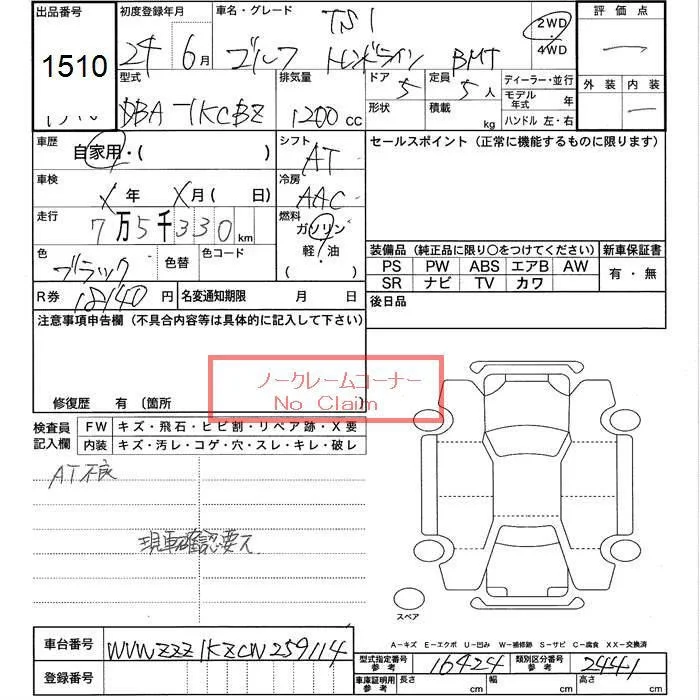 出品番号 初度登録年月 車名・グレード TSI 2WD・4WD 評価点
1510 24 6月 ゴルフ トレンドライン BMT
外装 内装
型式 排気量 ドア 5 定員 5人 ディーラー・並行
DBA-1KCBZ 1200cc 形状 積載 kg モデル年式 年
ハンドル 左・右
車歴 自家用・( ) シフト AT セールスポイント (正常に機能するものに限ります)
車検 X年 X月( 日) 冷房 AAC
走行 7万5千330km 燃料 ガソリン 軽・油
色 ブラック 色替 色コード 装備品 (純正品に限り○をつけてください) 新車保証書
PS PW ABS エアB AW 有・無
SR ナビ TV カワ
R券 18140円 名変通知期限 月 日 後日品
注意事項申告欄 (不具合内容等は具体的に記入して下さい)
ノークレームコーナー
No Claim
修復歴 有 〔箇所 〕
検査員記入欄 FW キズ・飛石・ヒビ割・リペア跡・X要
内装 キズ・汚レ・コゲ・穴・スレ・キレ・破レ
AT不良
現車確認要ス
スペア
A−キズ E−エクボ U−凹み W−補修跡 S−サビ C−腐食 XX−交換済
車台番号 WVWZZZ1KZCW259114 型式指定番号 参考 16424 類別区分番号 参考 2441
登録番号 車庫証明用 参考 長さ cm 幅 cm 高さ cm